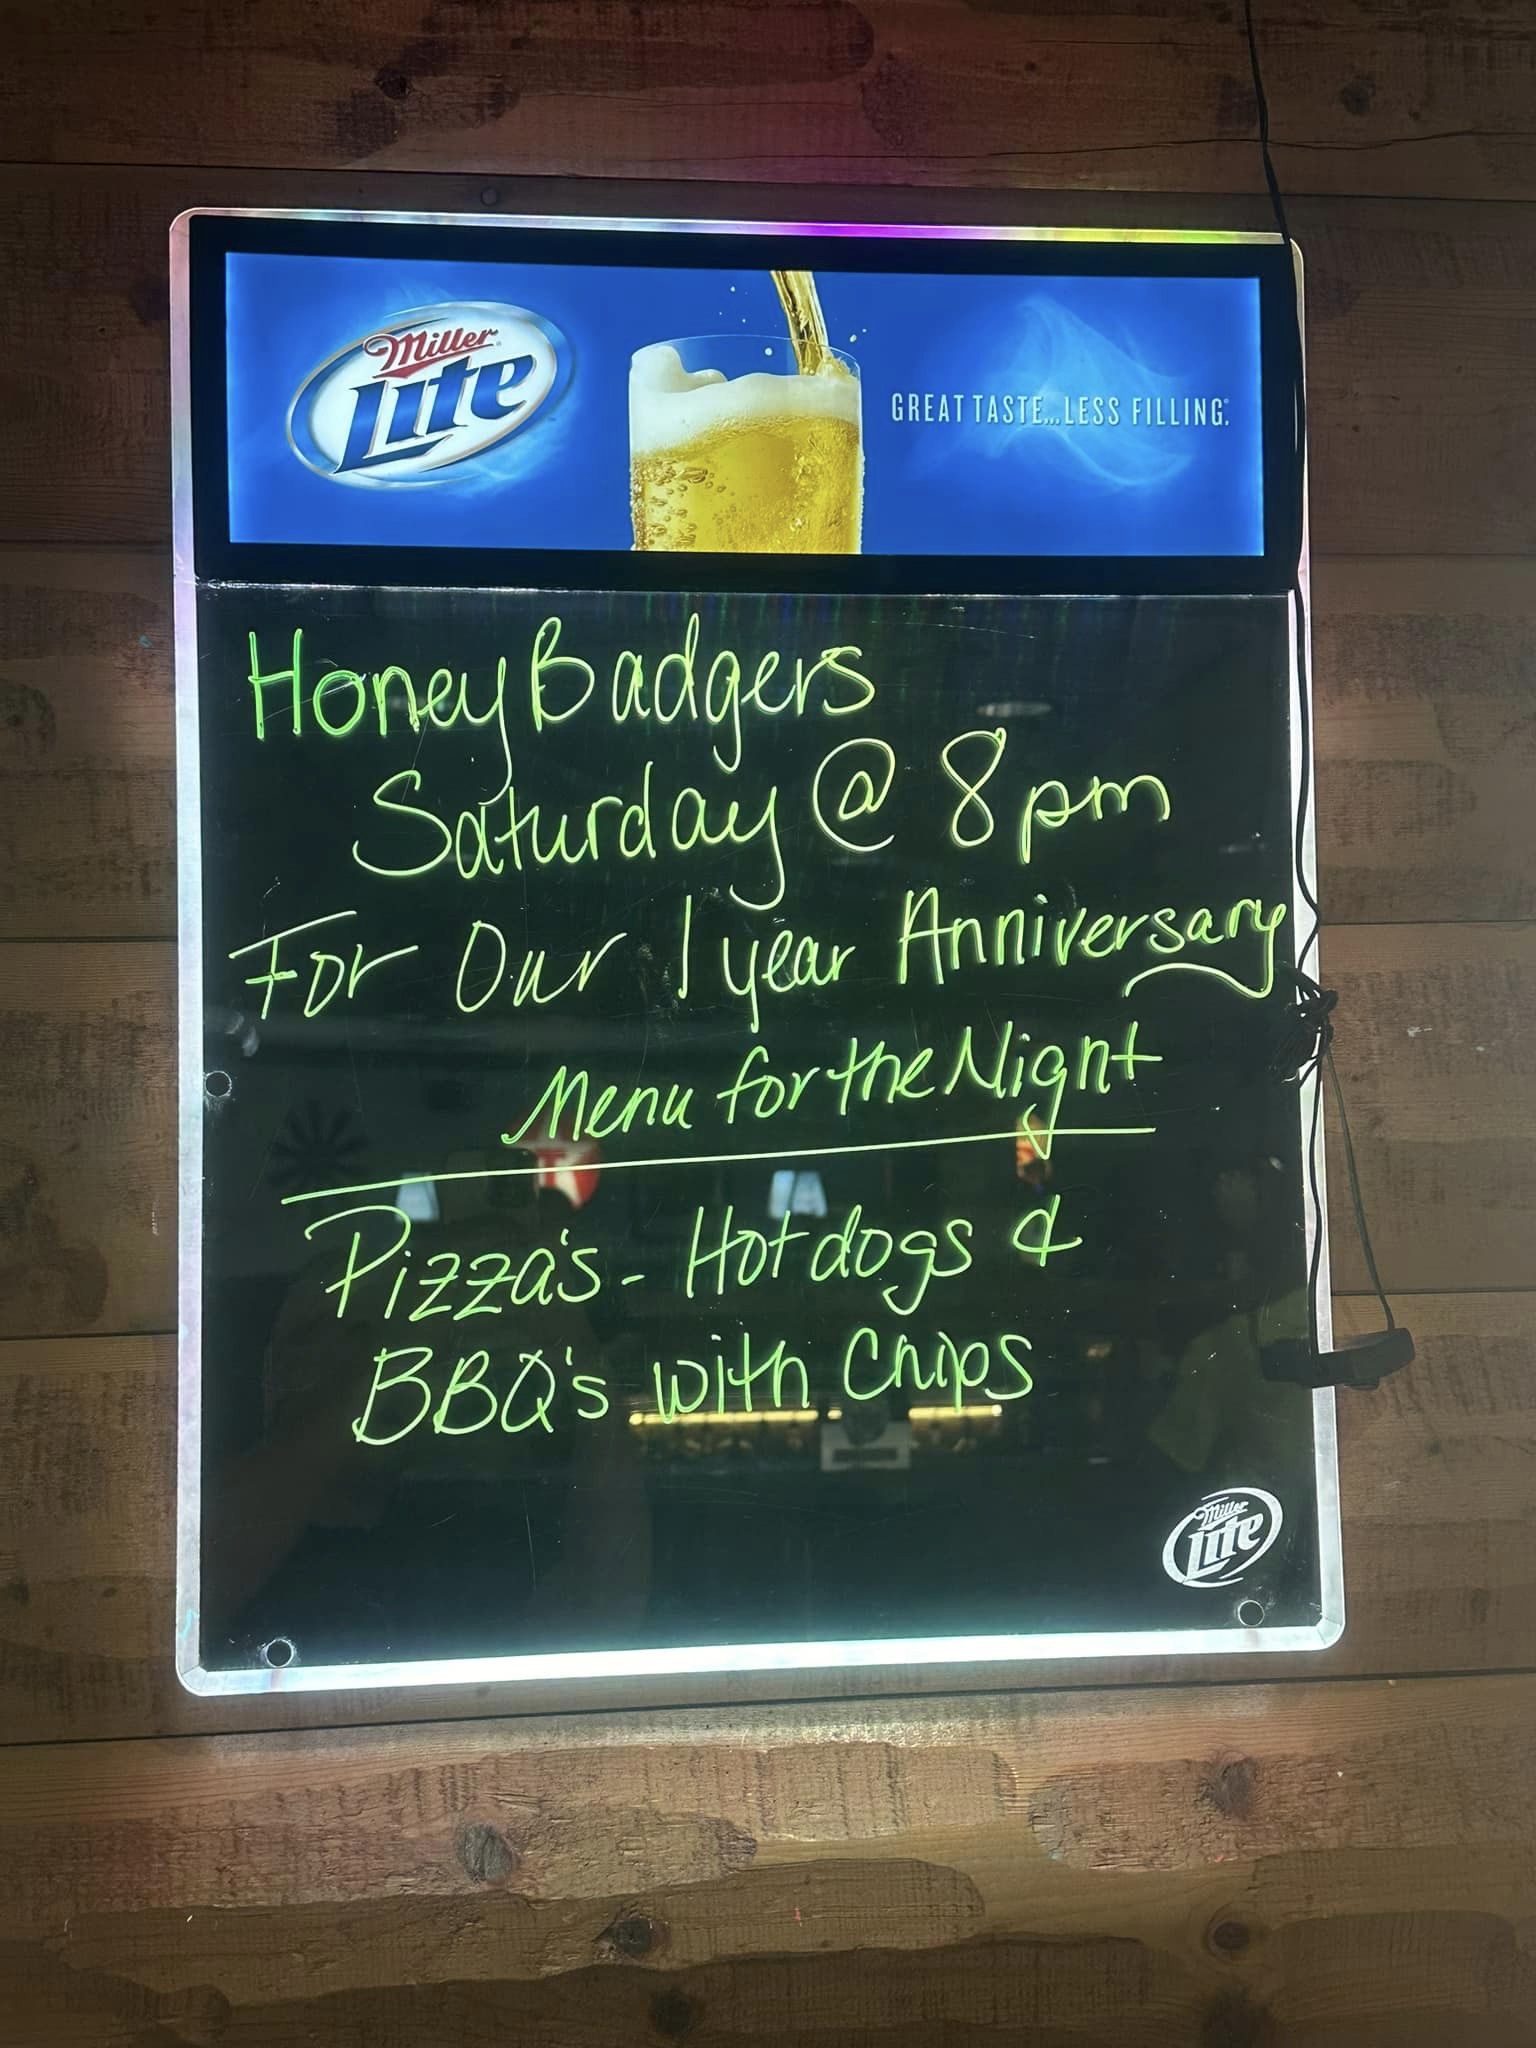 Miller
Lite
GREAT TASTE...LESS FILLING.®
Honey Badgers
Saturday @ 8pm
For Our 1 year Anniversary
Menu for the Night
Pizza's - Hotdogs &
BBQ's with Chips
Miller
Lite